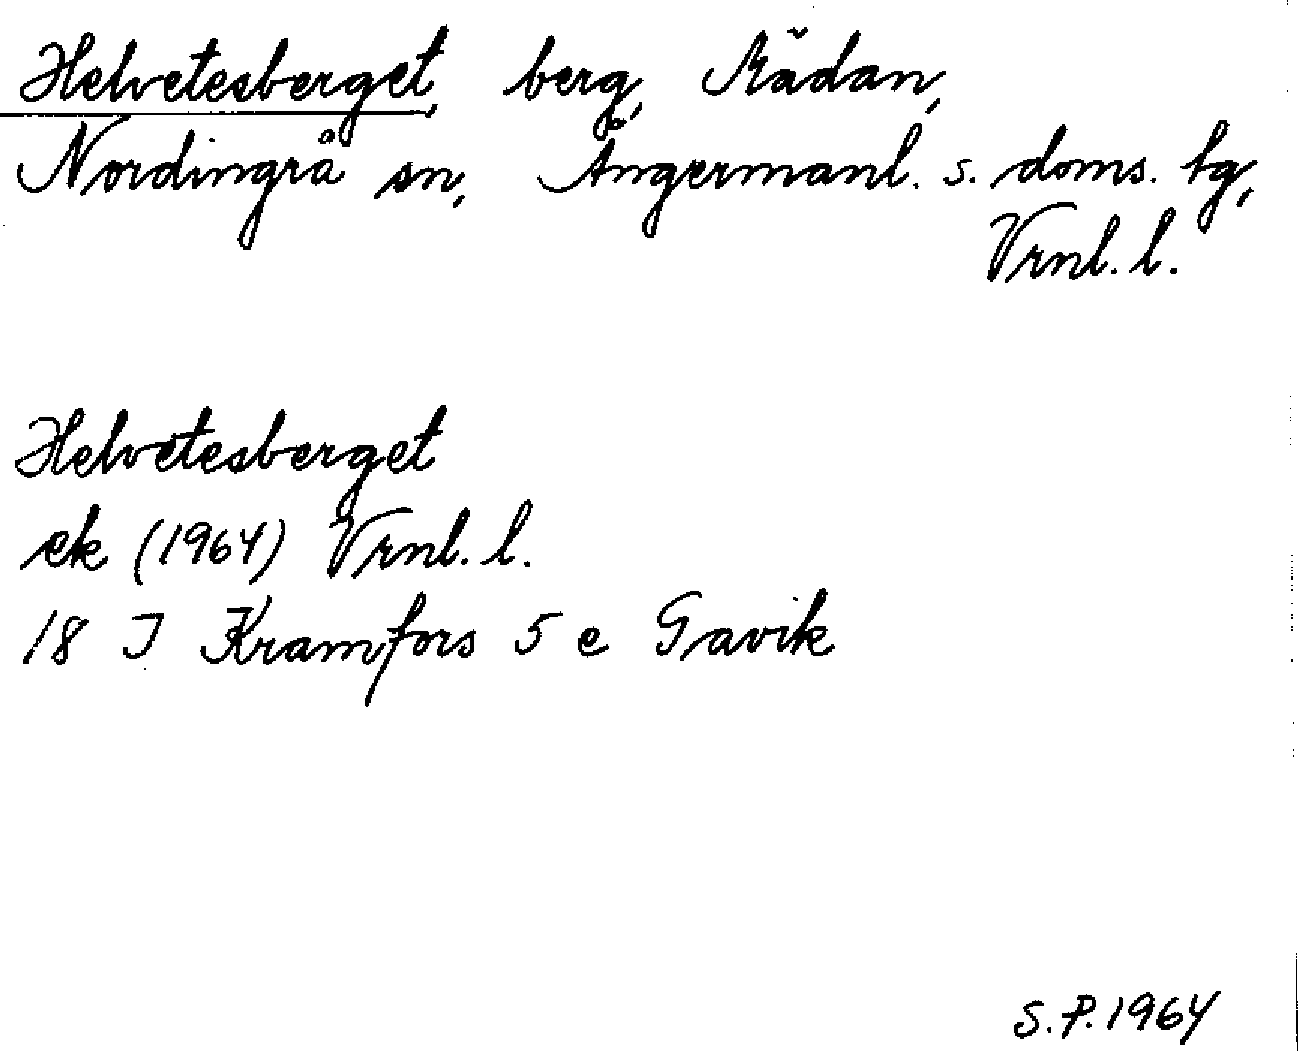 Helvetesberget, berg, Mädan,
Nordingrå sn, Ångermanl. s. doms. tg,
Vrnl. l.
Helvetesberget
ek (1964) Vrnl. l.
18 I Kramfors 5 e Gavik
S.P. 1964